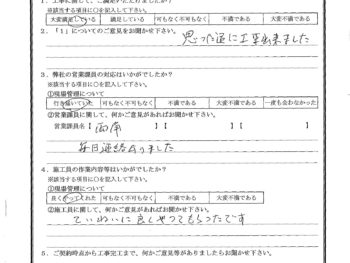 1．工事に関し、ご満足いただけましたか？
※該当する項目に○を記入して下さい。
大変満足している 満足している 可もなく不可もなく 不満である 大変不満である
2．「1」についてのご意見をお聞かせ下さい。
思った通に工事出来ました
3．弊社の営業課員の対応はいかがでしたか？
※該当する項目に○を記入して下さい。
①現場管理について
行き届いていた 可もなく不可もなく 不満である 大変不満である 一度も会わなかった
②営業課員に関して、何かご意見があればお聞かせ下さい。
営業課員名【 西南 】【 】【 】
毎日連絡ありました
4．施工員の作業内容等はいかがでしたか？
※該当する項目に○を記入して下さい。
①現場管理について
良くやってくれた 可もなく不可もなく 不満である 大変不満である
②施工員に関して、何かご意見があればお聞かせ下さい。
ていねいに良くやってもらったです
5．ご契約時点から工事完工まで、何かご意見等がありましたらお聞かせ下さい。